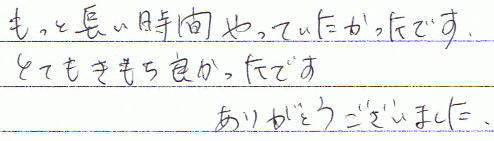 もっと長い時間やっていたかったです.
とてもきもち良かったです
ありがとうございました.